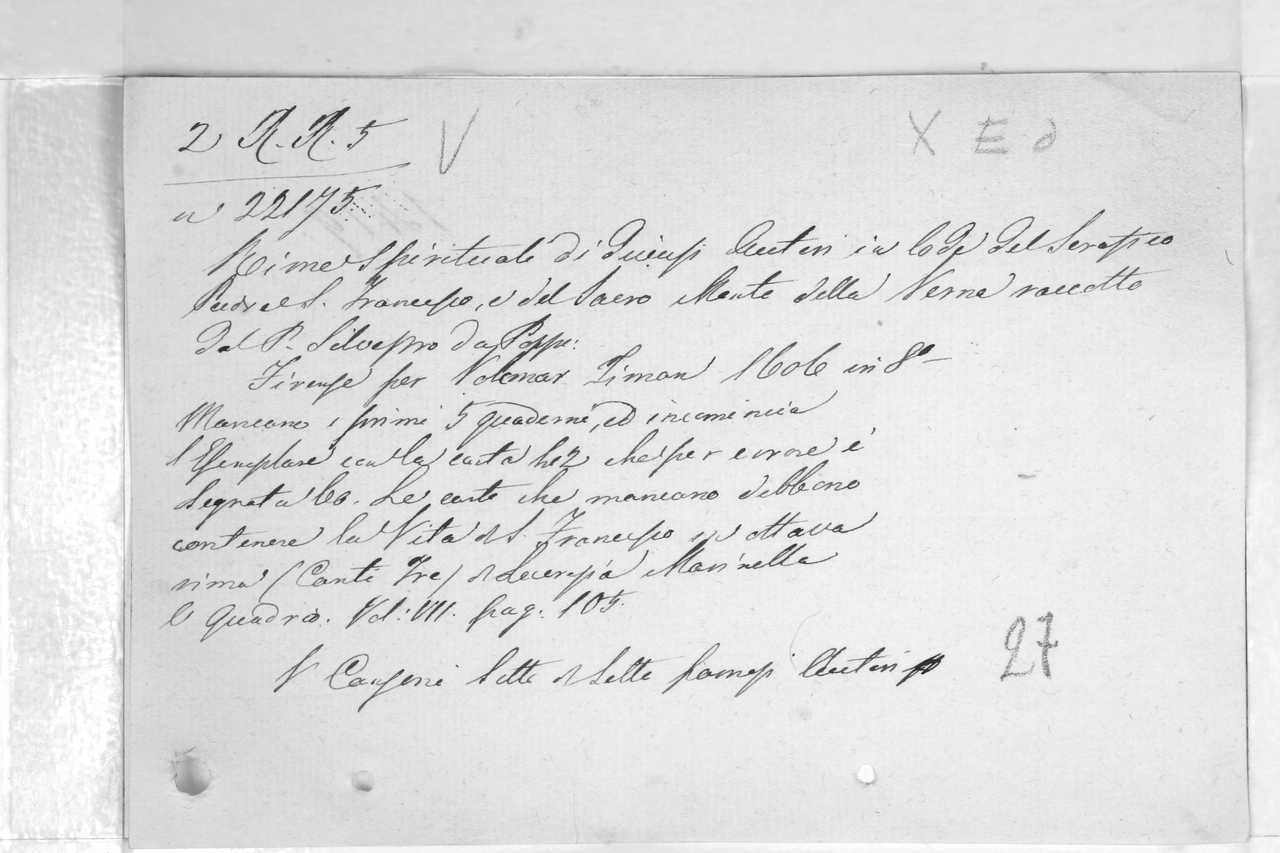 2 R. R. 5
V
X E d
n 22175
Rime Spirituali di diversi Autori in lode del Serafico
Padre S. Francesco, e del Sacro Monte della Verna raccolte
dal P. Silvestro da Poppi:
Firenze per Volcmar Timan 1606 in 8º
Mancano i primi 5 quaderni, ed incomincia
l'Esemplare con la carta che per errore è
segnata 60. Le carte che mancano debbono
contenere la Vita di S. Francesco in ottava
rima (Canti Tre) di Lucrezia Marinella
V Quadrio. Vol: VII. pag: 105.
V Canzoni Sette di Sette famosi Autori
27